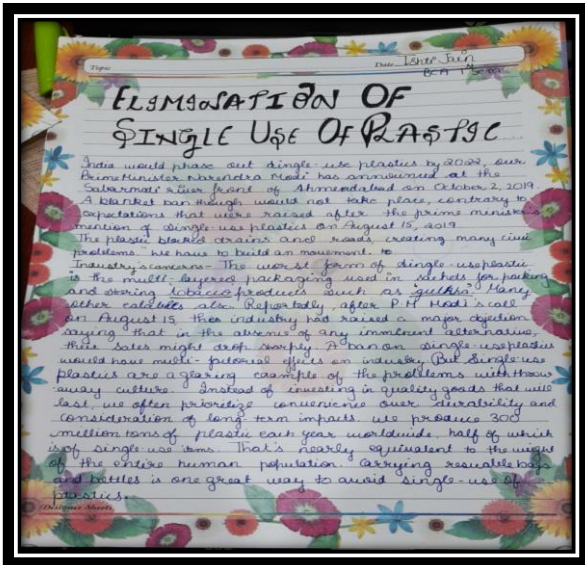 Topic Date Ishti Jain
BCA 1st Sem
ELIMINATION OF
SINGLE USE OF PLASTIC
India would phase out single-use plastics by 2022, our
Prime Minister Narendra Modi has announced at the
Sabarmati river front of Ahmendabad on October 2, 2019.
A blanket ban though would not take place, contrary to
expectations that were raised after the prime minister
mention of single-use plastics on August 15, 2019
The plastic blocked drains and roads, creating many civic
problems. We have to build an movement. to
Industry's concerns - The worst form of single-use plastic
is the multi-layered packaging used in sachets for packing
and storing tobacco products such as "gutkha". Many
other also. Reportedly, after P.M Modi's call
on August 15, this industry had raised a major objection
saying that in the absence of any imminent alternative,
their sales might drop sharply. A ban on single-use plastics
would have multi- effects on industry. But Single-use
plastics are a glaring example of the problems with throw-
away culture. Instead of investing in quality goods that will
last, we often prioritize convenience over durability and
consideration of long term impacts. we produce 300
million tons of plastic each year worldwide, half of which
is of single-use items. That's nearly equivalent to the weight
of the entire human population. Carrying reusable bags
and bottles is one great way to avoid single-use of
plastics.
(Designer Sheets)